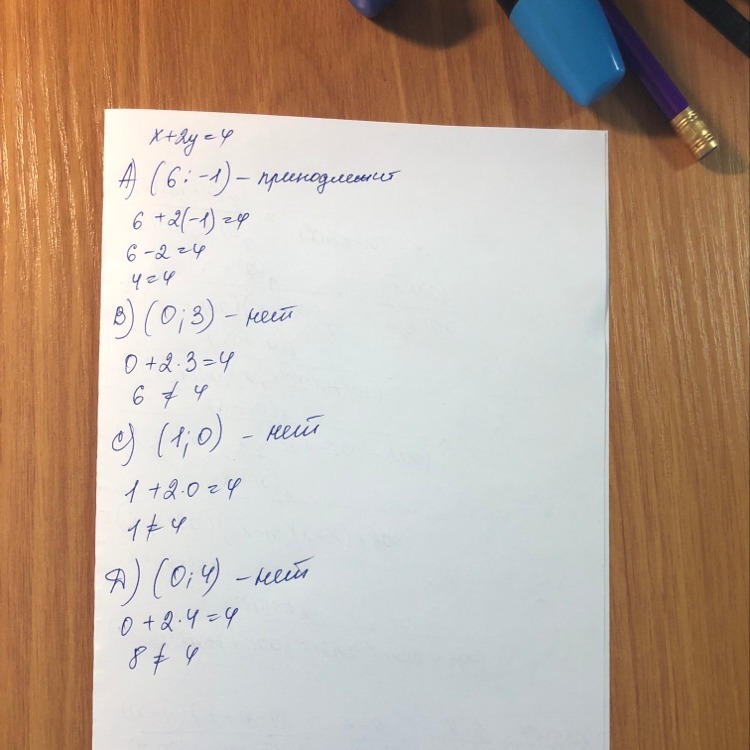 x+2y=4
А) (6; -1) – принодлежит
6 +2(-1) =4
6 -2 =4
4=4
В) (0;3) – нет
0+2·3=4
6 ≠ 4
С) (1;0) – нет
1 +2·0=4
1≠ 4
Д) (0;4) – нет
0+2·4=4
8 ≠ 4